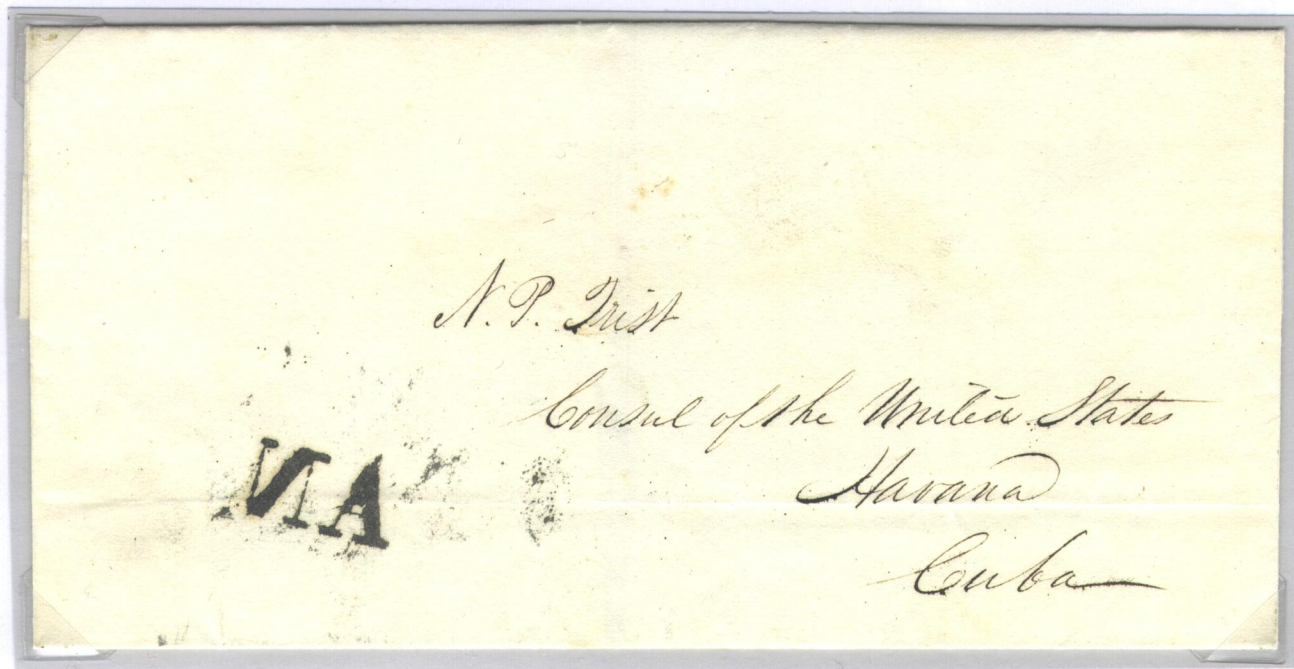 N. P. Trist
Consul of the United States
Havana
Cuba
NA